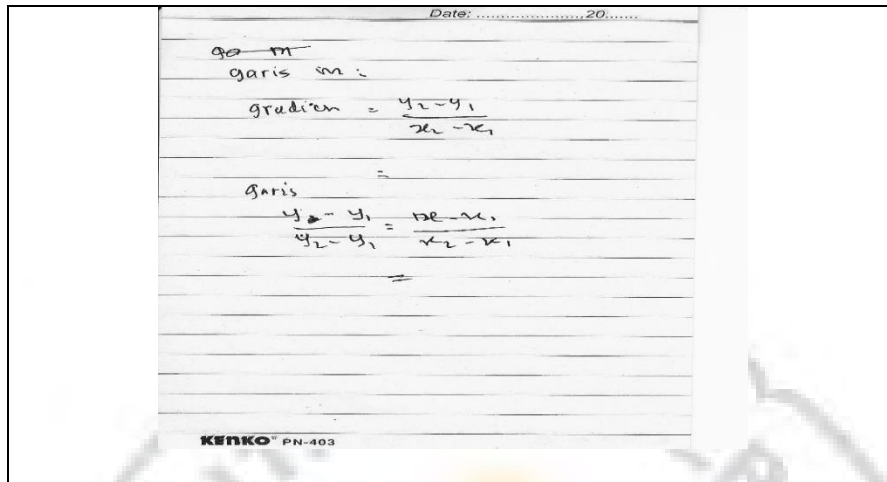 Date: ......................,20.......
go m
garis m :
gradien = y₂ - y₁ / x₂ - x₁
=
garis
y - y₁ / y₂ - y₁ = x - x₁ / x₂ - x₁
=
KENKO PN-403